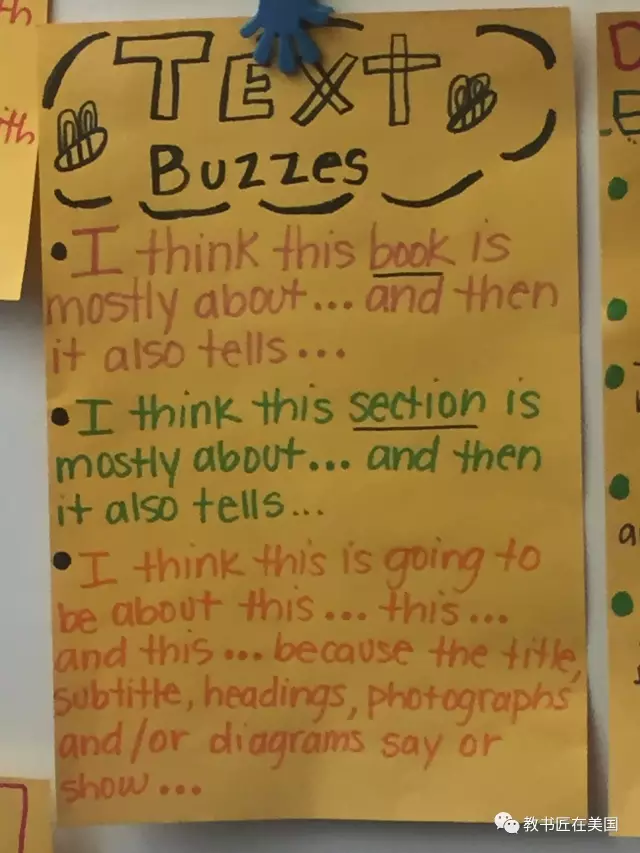 TEXT
Buzzes
• I think this book is
mostly about... and then
it also tells...
• I think this section is
mostly about... and then
it also tells...
• I think this is going to
be about this... this...
and this... because the title,
subtitle, headings, photographs
and/or diagrams say or
show...
th
ith
D
E
教书匠在美国